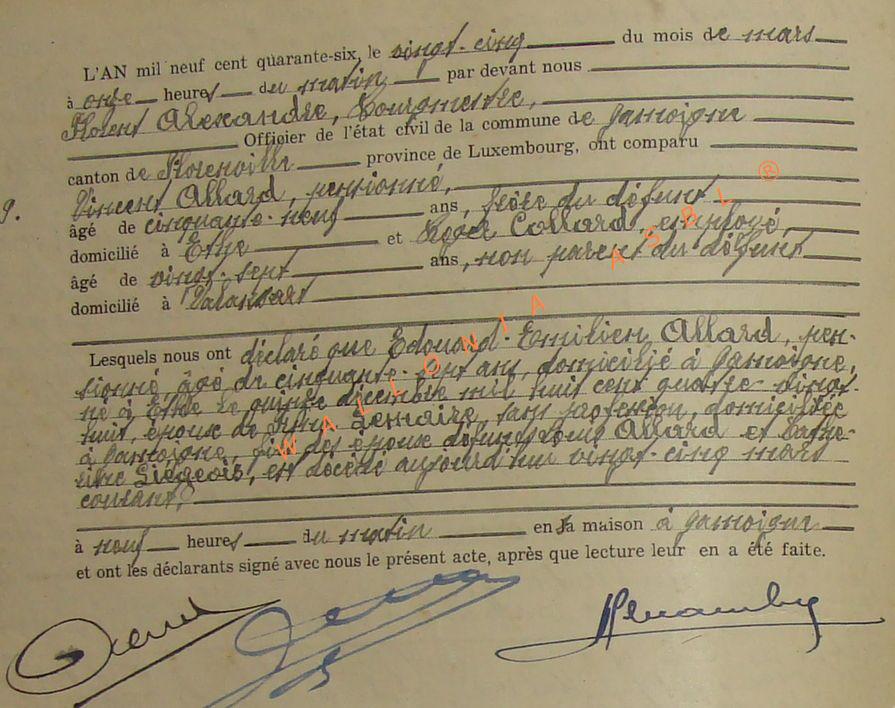 L'AN mil neuf cent quarante-six, le vingt-cinq du mois de mars
à onze heures du matin par devant nous
Florent Alexandre, Bourgmestre,
Officier de l'état civil de la commune de Jamoigne
canton de Florenville province de Luxembourg, ont comparu
9. Vincent Allard, pensionné,
âgé de cinquante-neuf ans, frère du défunt
domicilié à Ethe et Roger Collard, employé,
âgé de vingt-sept ans, non parent du défunt
domicilié à Valansart
Lesquels nous ont déclaré que Edouard-Emilien Allard, pen-
sionné âgé de cinquante-sept ans, domicilié à Jamoigne,
né à Ethe le quinze décembre mil huit cent quatre-vingt-
huit, époux de Lemaire, sans profession, domiciliée
à Jamoigne, fils des époux défunts Louis Allard et Cathe-
rine Liégeois, est décédé aujourd'hui vingt-cinq mars
courant,
à neuf heures du matin en sa maison à Jamoigne
et ont les déclarants signé avec nous le présent acte, après que lecture leur en a été faite.
WALLONIA ASBL ®